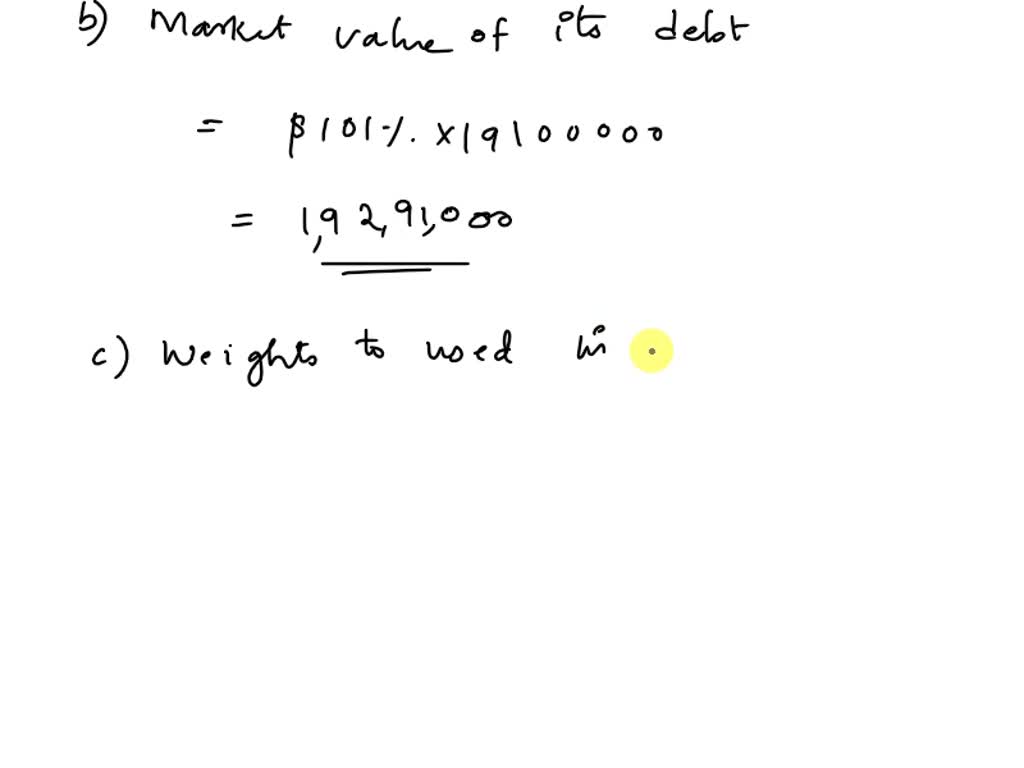 b) Market value of its debt
= $101%. x19100000
= 1,92,91,000
c) Weights to used in